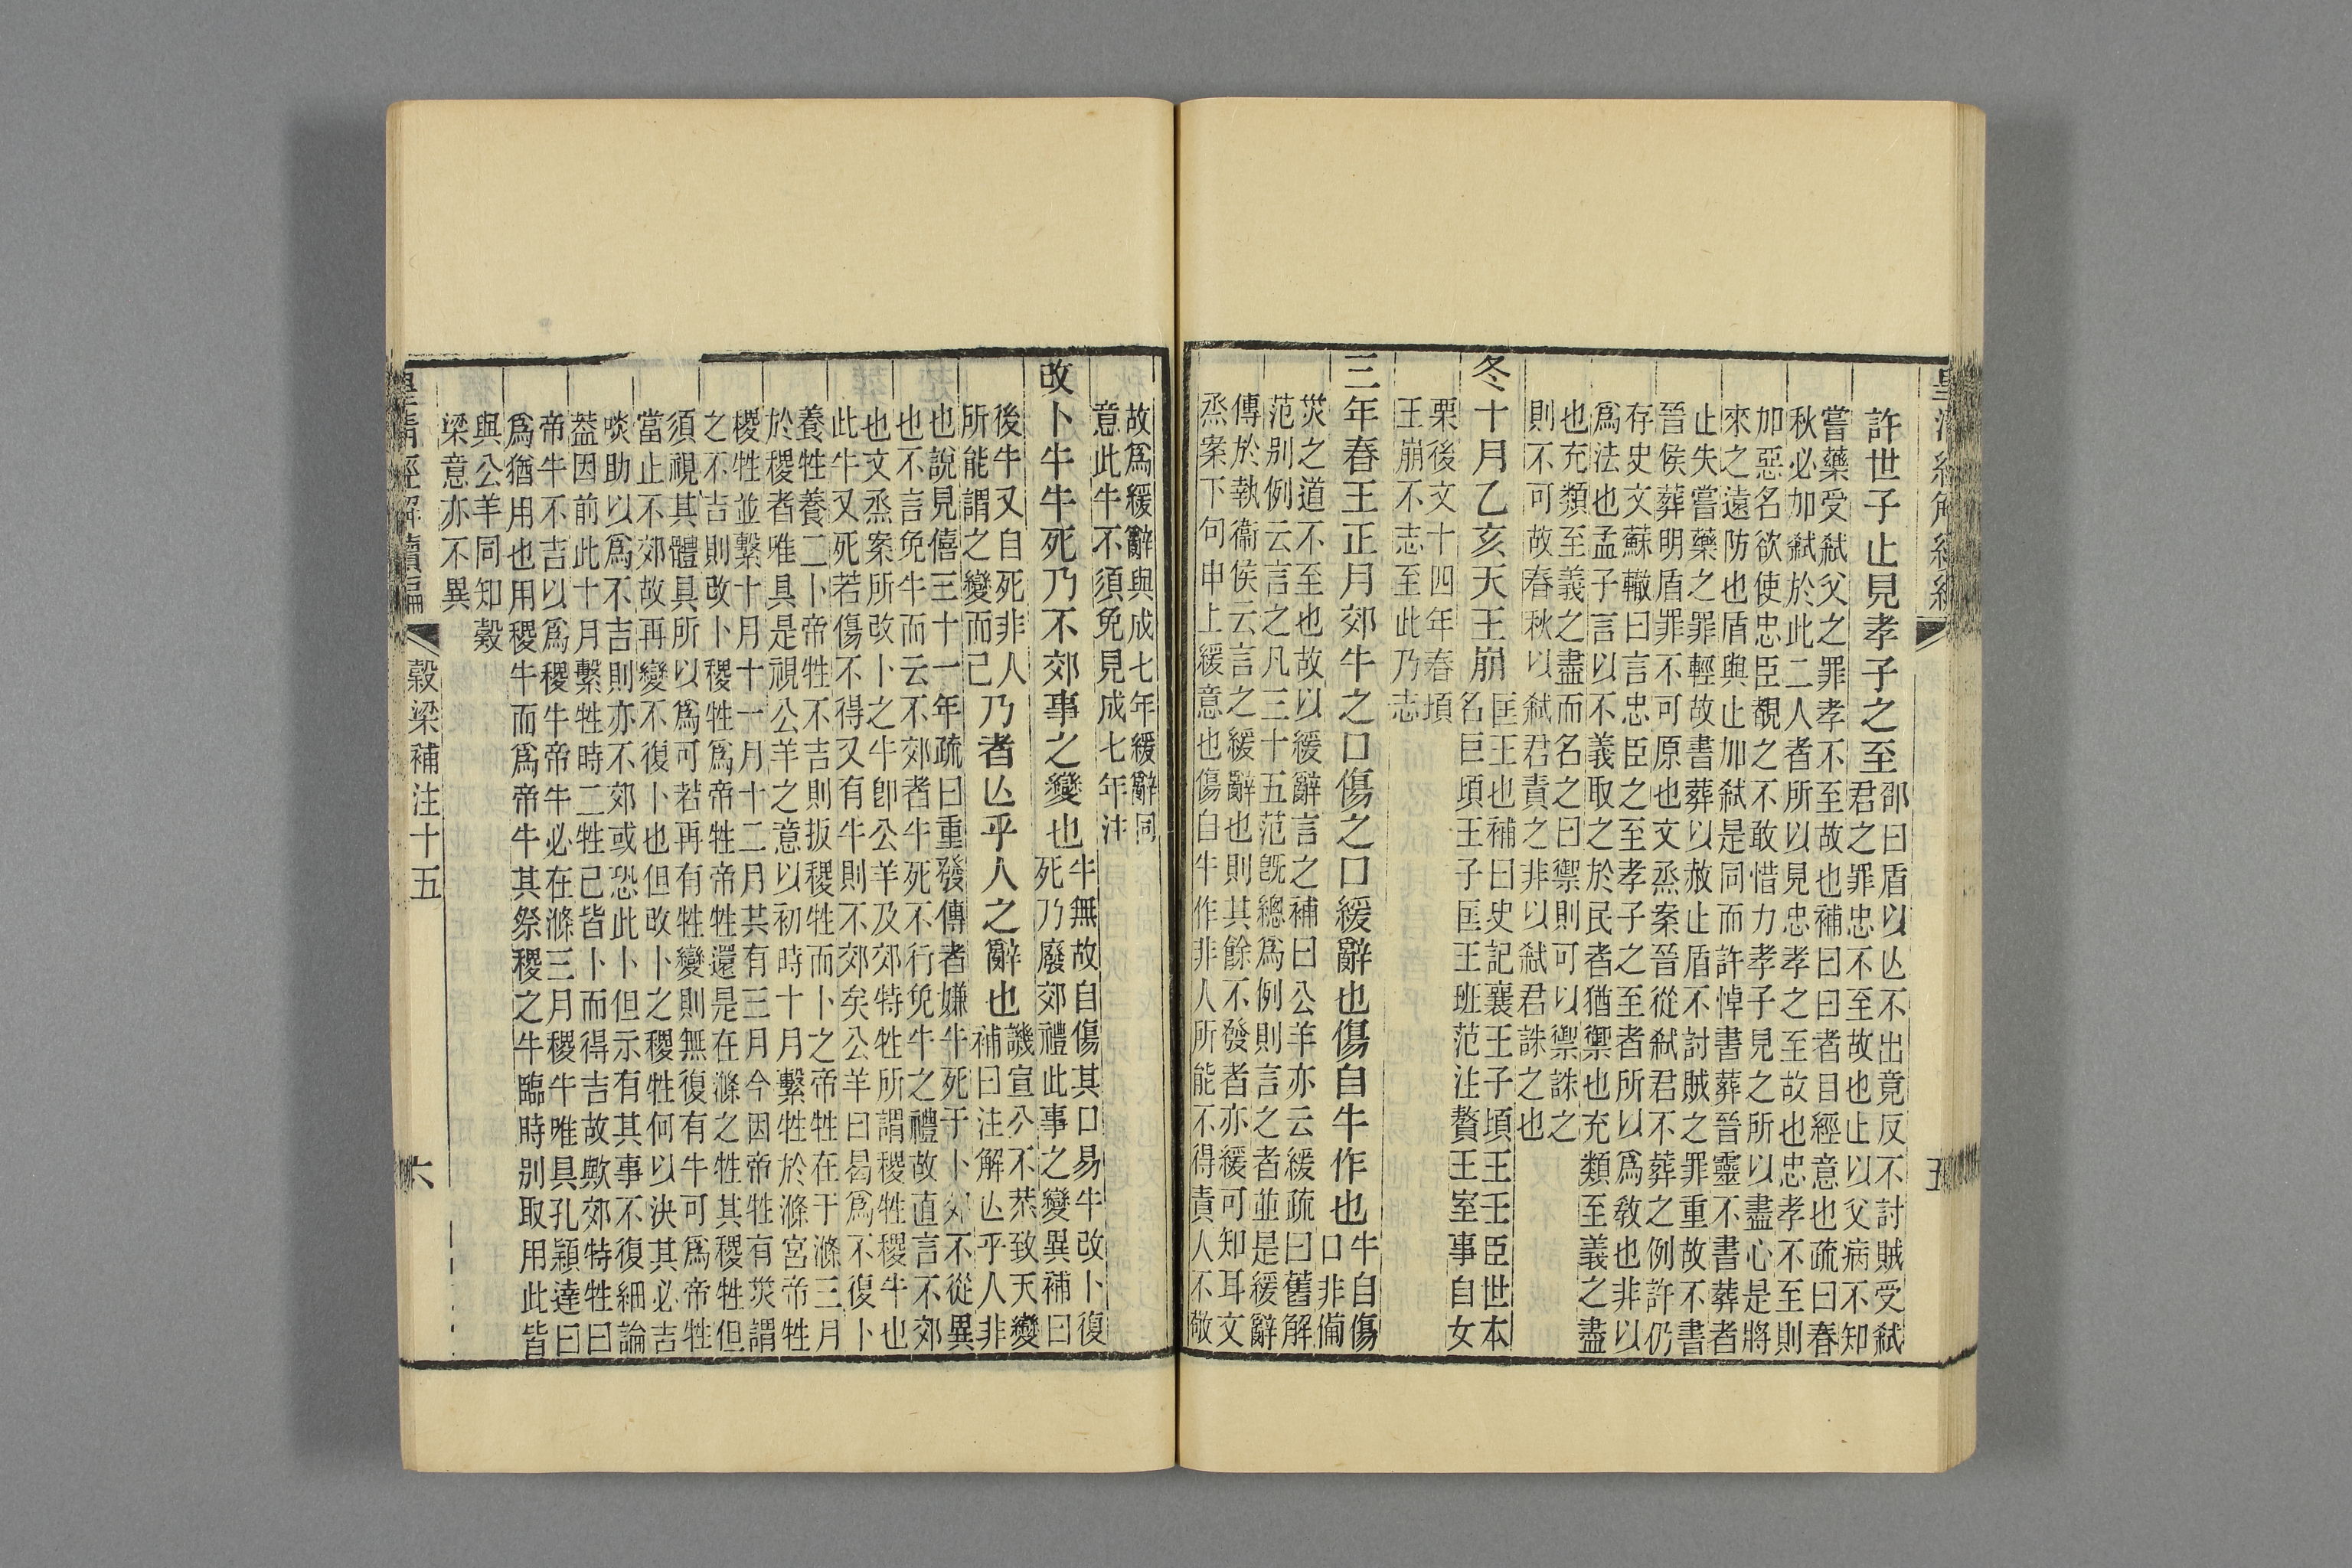 許世子止見孝子之至
邵曰盾以亾不出竟反不討賊受弑
君之罪忠不至故也止以父病不知
嘗藥受弑父之罪孝不至故也補曰曰者目經意也疏曰春
秋必加弑於此二人者所以見忠孝之至故也忠孝不至則
加惡名欲使忠臣覩之不敢惜力孝子見之所以盡心是將
來之遠防也盾與止加弑是同而許悼書葬晉靈不書葬者
止失嘗藥之罪輕故書葬以赦止盾不討賊之罪重故不書
晉侯葬明盾罪不可原也文烝案晉從弑君不葬之例許仍
存史文蘇轍曰言忠臣之至孝子之至者所以爲敎也非以
爲法也孟子言以不義取之於民者猶禦也充類至義之盡
也充類至義之盡而名之曰禦則可以禦誅之
則不可故春秋以弑君責之非以弑君誅之也
冬十月乙亥天王崩
匡王也補曰史記襄王子頃王壬臣世本
名巨頃王子匡王班范注贅王室事自女
栗後文十四年春頃
王崩不志至此乃志
三年春王正月郊牛之口傷之口緩辭也傷自牛作也
牛自傷
口非備
災之道不至也故以緩辭言之補曰公羊亦云緩疏曰舊解
范别例云言之凡三十五范旣總爲例則言之者並是緩辭
傳於執衞侯云言之緩辭也則其餘不發者亦緩可知耳文
烝案下句申上緩意也傷自牛作非人所能不得責人不敬
五
故爲緩辭與成七年緩辭同
意此牛不須免見成七年注
改卜牛牛死乃不郊事之變也
牛無故自傷其口易牛改卜復
死乃廢郊禮此事之變異補曰
後牛又自死非人
所能謂之變而已
乃者亾乎人之辭也
譏宣公不恭致天變
補曰注解亾乎人非
也說見僖三十一年疏曰重發傳者嫌牛死于卜郊不從異
也不言免牛而云不郊者牛死不行免牛之禮故直言不郊
也文烝案所改卜之牛卽公羊及郊特牲所謂稷牲稷牛也
此牛又死若傷不得又有牛則不郊矣公羊曰曷爲不復卜
養牲養二卜帝牲不吉則扳稷牲而卜之帝牲在于滌三月
於稷者唯具是視公羊之意以初時十月繫牲於滌宮帝牲
稷牲並繫十月十一月十二月其有三月今因帝牲有災謂
之不吉則改卜稷牲爲帝牲帝牲還是在滌之牲其稷牲但
須視其體具所以爲可若再有牲變則無復有牛可爲帝牲
當止不郊故再變不復卜也但改卜之稷牲何以決其必吉
啖助以爲不吉則亦不郊或恐此卜但示有其事不復細論
葢因前此十月繫牲時二牲已皆卜而得吉故歟郊特牲曰
帝牛不吉以爲稷牛帝牛必在滌三月稷牛唯具孔穎達曰
爲猶用也用稷牛而爲帝牛其祭稷之牛臨時别取用此皆
與公羊同知穀
梁意亦不異
皇清經解續編
穀梁補注十五
六